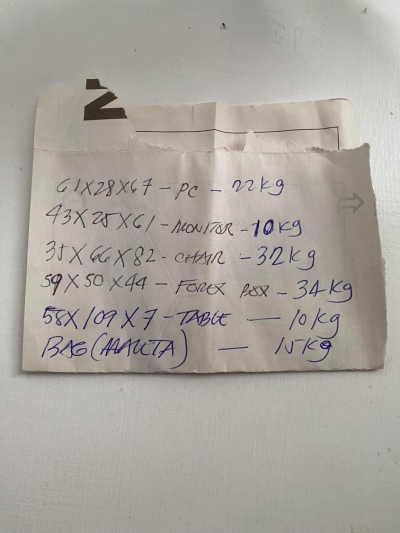 N
61X28X67 - PC - 22kg
43X25X61 - MONITOR - 10kg
35X66X82 - CHAIR - 32kg
59X50X44 - FOREX BOX - 34kg
58X109X7 - TABLE - 10kg
BAG (MALITA) - 15kg